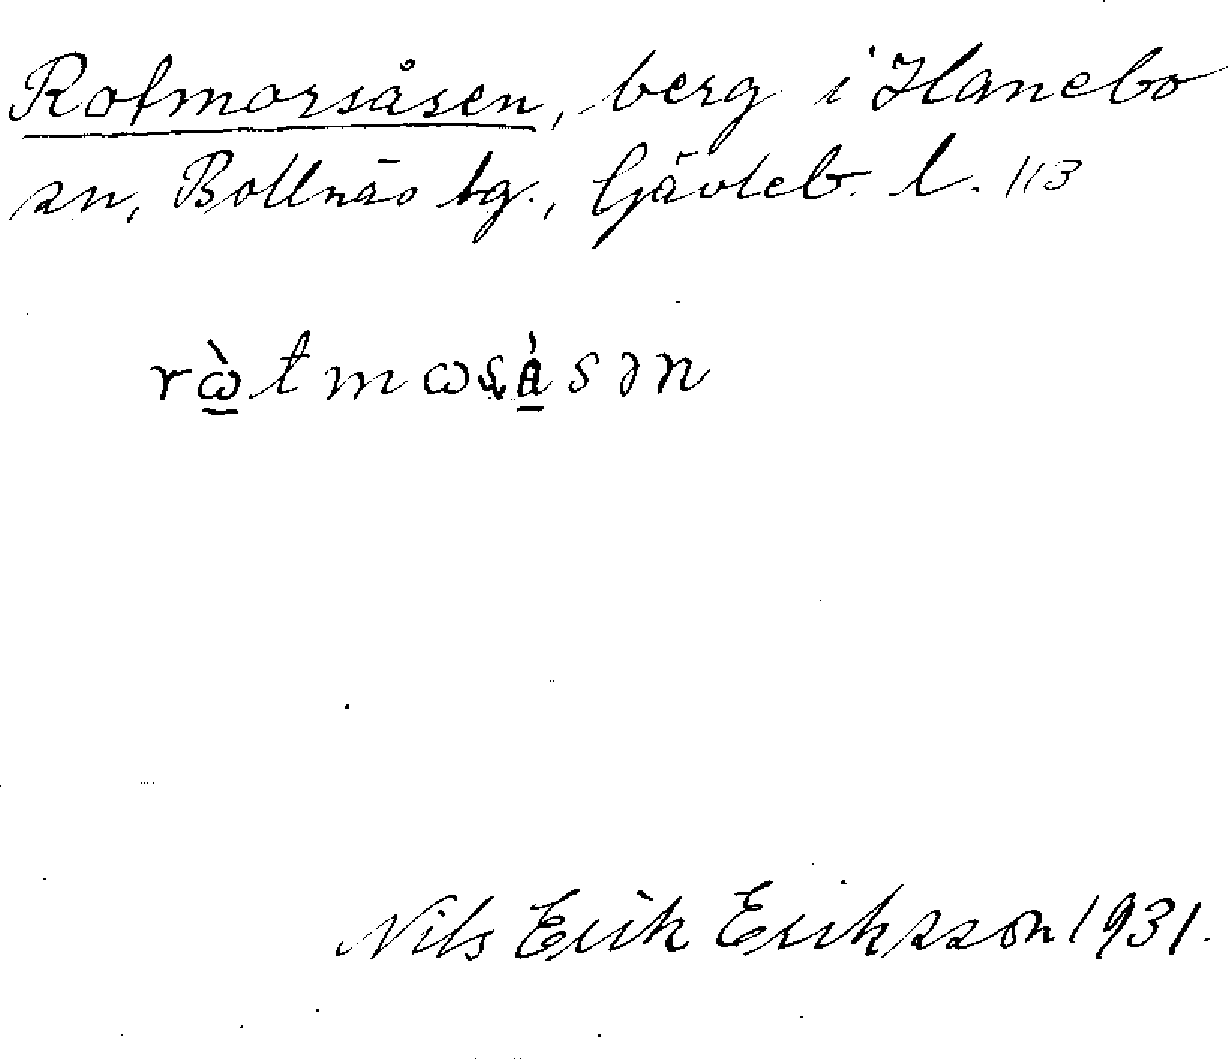 Rotmorsåsen, berg i Hanebo
sn, Bollnäs tg., Gävleb. l. 113
rὼtmωsåsən
Nils Erik Eriksson 1931.